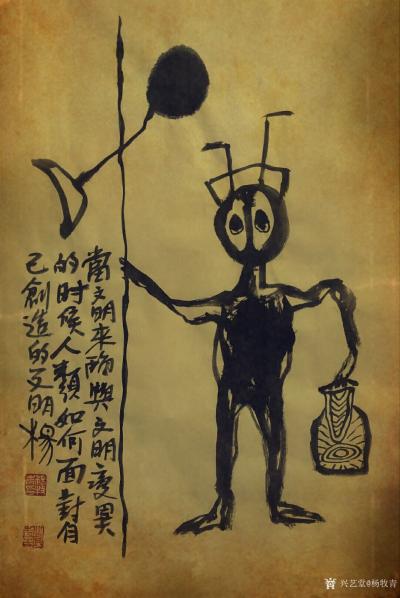 當文明來臨與文明變異
的时候人類如何面對自
己創造的文明楊
兴艺堂@杨牧青